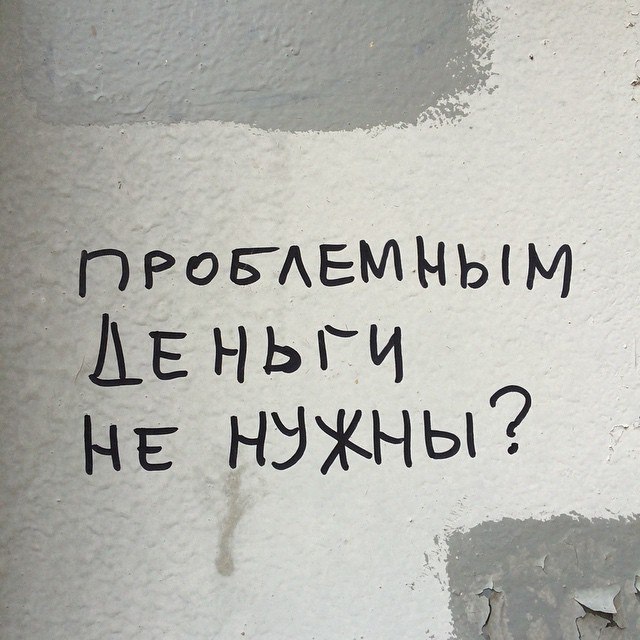 ПРОБЛЕМНЫМ
ДЕНЬГИ
НЕ НУЖНЫ?